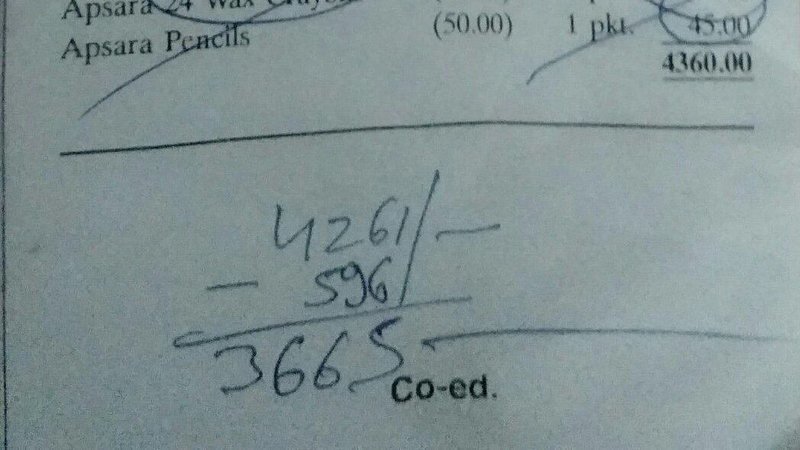 Apsara 24 Wax Crayons
Apsara Pencils (50.00) 1 pkt. 45.00
4360.00
4261/—
- 596/
3665
Co-ed.